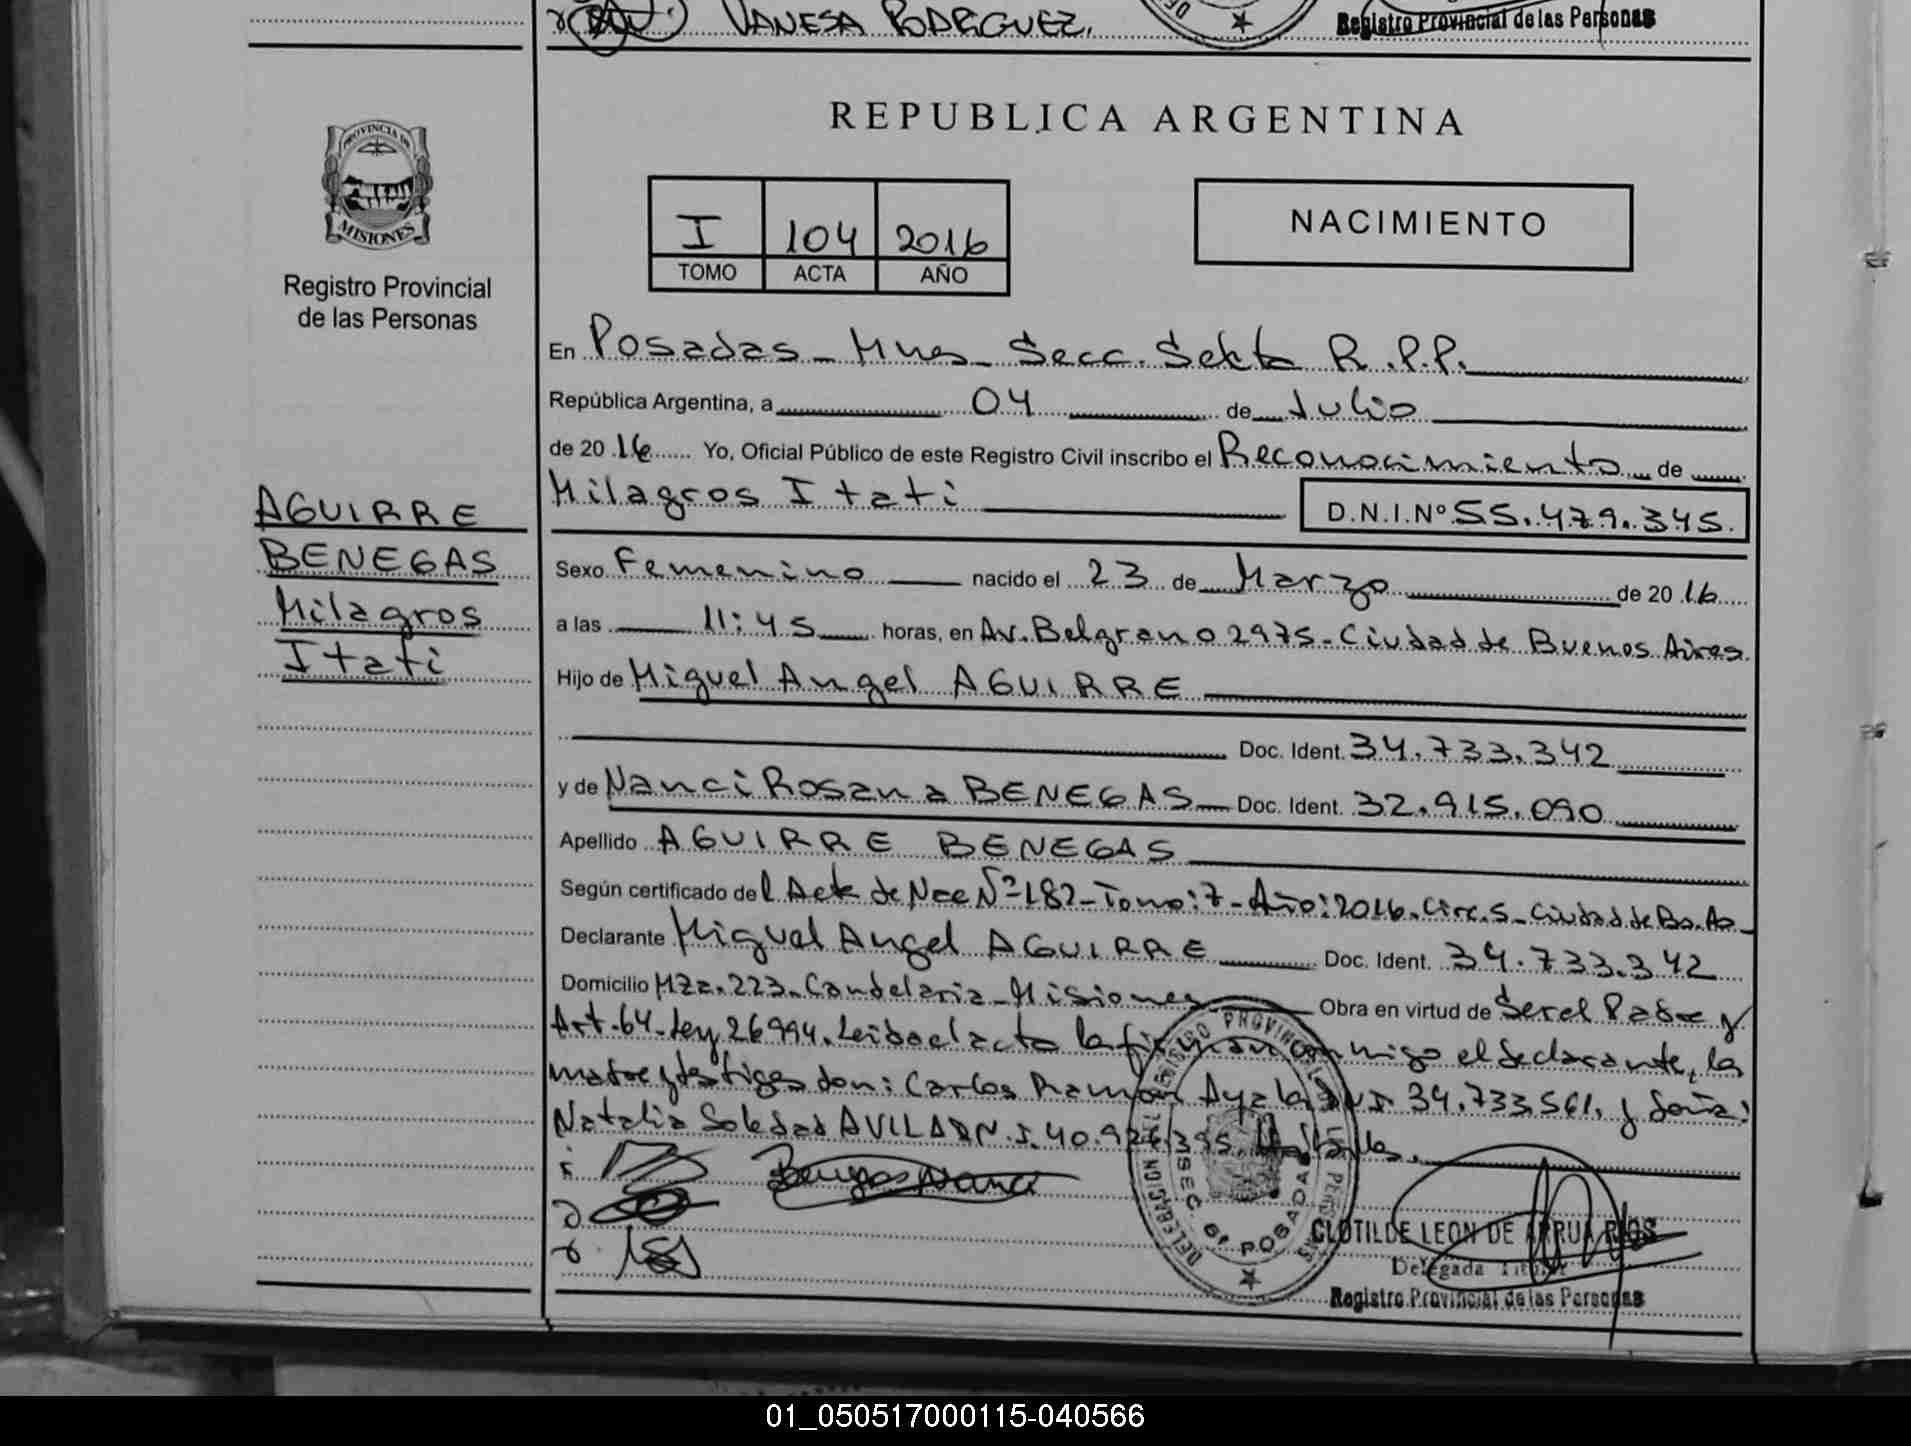 VANESA RODRGUEZ.
Registro Provincial de las Personas
PROVINCIA DE
MISIONES
Registro Provincial
de las Personas
REPUBLICA ARGENTINA
I 104 2016
TOMO ACTA AÑO
NACIMIENTO
En Posadas - Mnes - Secc. Sexta R.P.P.
República Argentina, a 04 de Julio
de 2016 Yo, Oficial Público de este Registro Civil inscribo el Reconocimiento de
Milagros Itati D.N.I.Nº 55.479.345.
AGUIRRE
BENEGAS
Milagros
Itati
Sexo Femenino nacido el 23 de Marzo de 2016
a las 11:45 horas, en Av. Belgrano 2975 - Ciudad de Buenos Aires
Hijo de Miguel Angel AGUIRRE
Doc. Ident. 34.733.342
y de Nanci Rosana BENEGAS Doc. Ident. 32.915.090
Apellido AGUIRRE BENEGAS
Según certificado del Acta de Nac Nº 182 - Tomo: 7 - Año: 2016. Circ. 5 - Ciudad de Bs. As
Declarante Miguel Angel AGUIRRE Doc. Ident. 34.733.342
Domicilio Mza. 223 - Candelaria - Misiones Obra en virtud de Ser el Padre y
Art. 64 - Ley 26994. Leida el acta la firman conmigo el declarante, la
madre y testigos don: Carlos Ramon Ayala DNI 34.733.561. y doña:
Natalia Soledad AVILA DN.I. 40.926.395.
Benegas Nanci
REGISTRO PROVINCIAL DE LAS PERSONAS
DELEGACION
SEC. 6ª POSADAS
CLOTILDE LEON DE ARRUA RIOS
Delegada Titular
Registro Provincial de las Personas
01_050517000115-040566